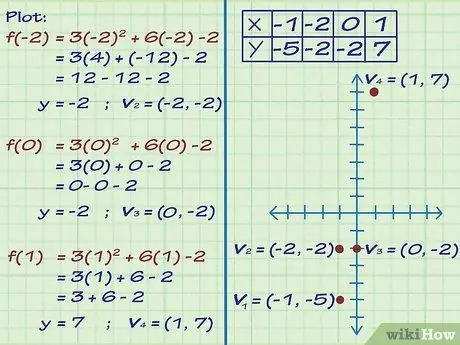 Plot:
f(-2) = 3(-2)² + 6(-2) -2
= 3(4) + (-12) - 2
= 12 - 12 - 2
y = -2 ; V₂ = (-2, -2)
f(0) = 3(0)² + 6(0) -2
= 3(0) + 0 - 2
= 0- 0 - 2
y = -2 ; V₃ = (0, -2)
f(1) = 3(1)² + 6(1) -2
= 3(1) + 6 - 2
= 3 + 6 - 2
y = 7 ; V₄ = (1, 7)
X -1 -2 0 1
Y -5 -2 -2 7
V₄ = (1, 7)
V₂ = (-2, -2)
V₃ = (0, -2)
V₁ = (-1, -5)
wikiHow